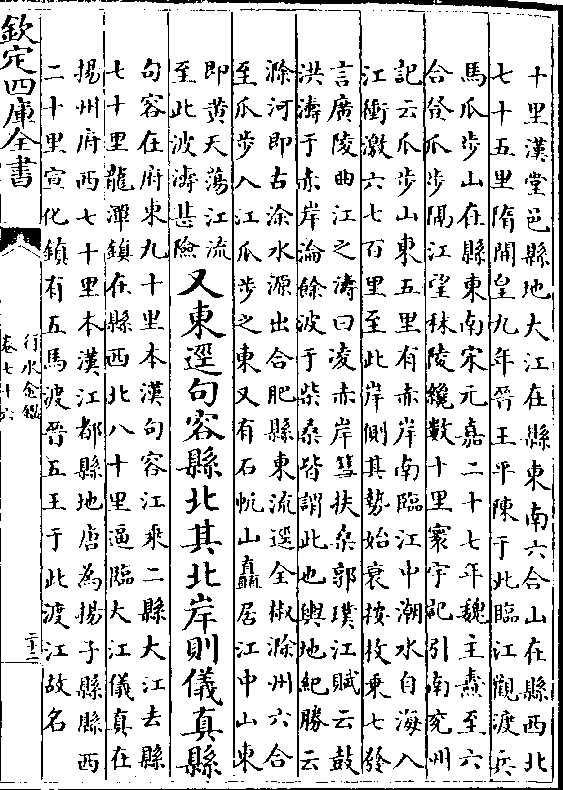 十里漢堂邑縣地大江在縣東南六合山在縣西北
七十五里隋開皇九年晉王平陳于此臨江觀渡兵
馬瓜步山在縣東南宋元嘉二十七年魏主燾至六
合登瓜步隔江望秣陵纔數十里寰宇記引南兗州
記云瓜步山東五里有赤岸南臨江中潮水自海入
江衝激六七百里至此岸側其勢始衰按枚乘七發
言廣陵曲江之濤曰凌赤岸篲扶桑郭璞江賦云鼓
洪濤于赤岸淪餘波于柴桑皆謂此也輿地紀勝云
滁河即古涂水源出合肥縣東流逕全椒滁州六合
至瓜步入江瓜步之東又有石帆山矗居江中山東
即黄天蕩江流
至此波濤甚險
又東逕句容縣北其北岸則儀真縣
句容在府東九十里本漢句容江乘二縣大江去縣
七十里龍潭鎮在縣西北八十里逼臨大江儀真在
揚州府西七十里本漢江都縣地唐為揚子縣縣西
二十里宣化鎮有五馬渡晉五王于此渡江故名
欽定四庫全書
行水金鑑
卷七十六